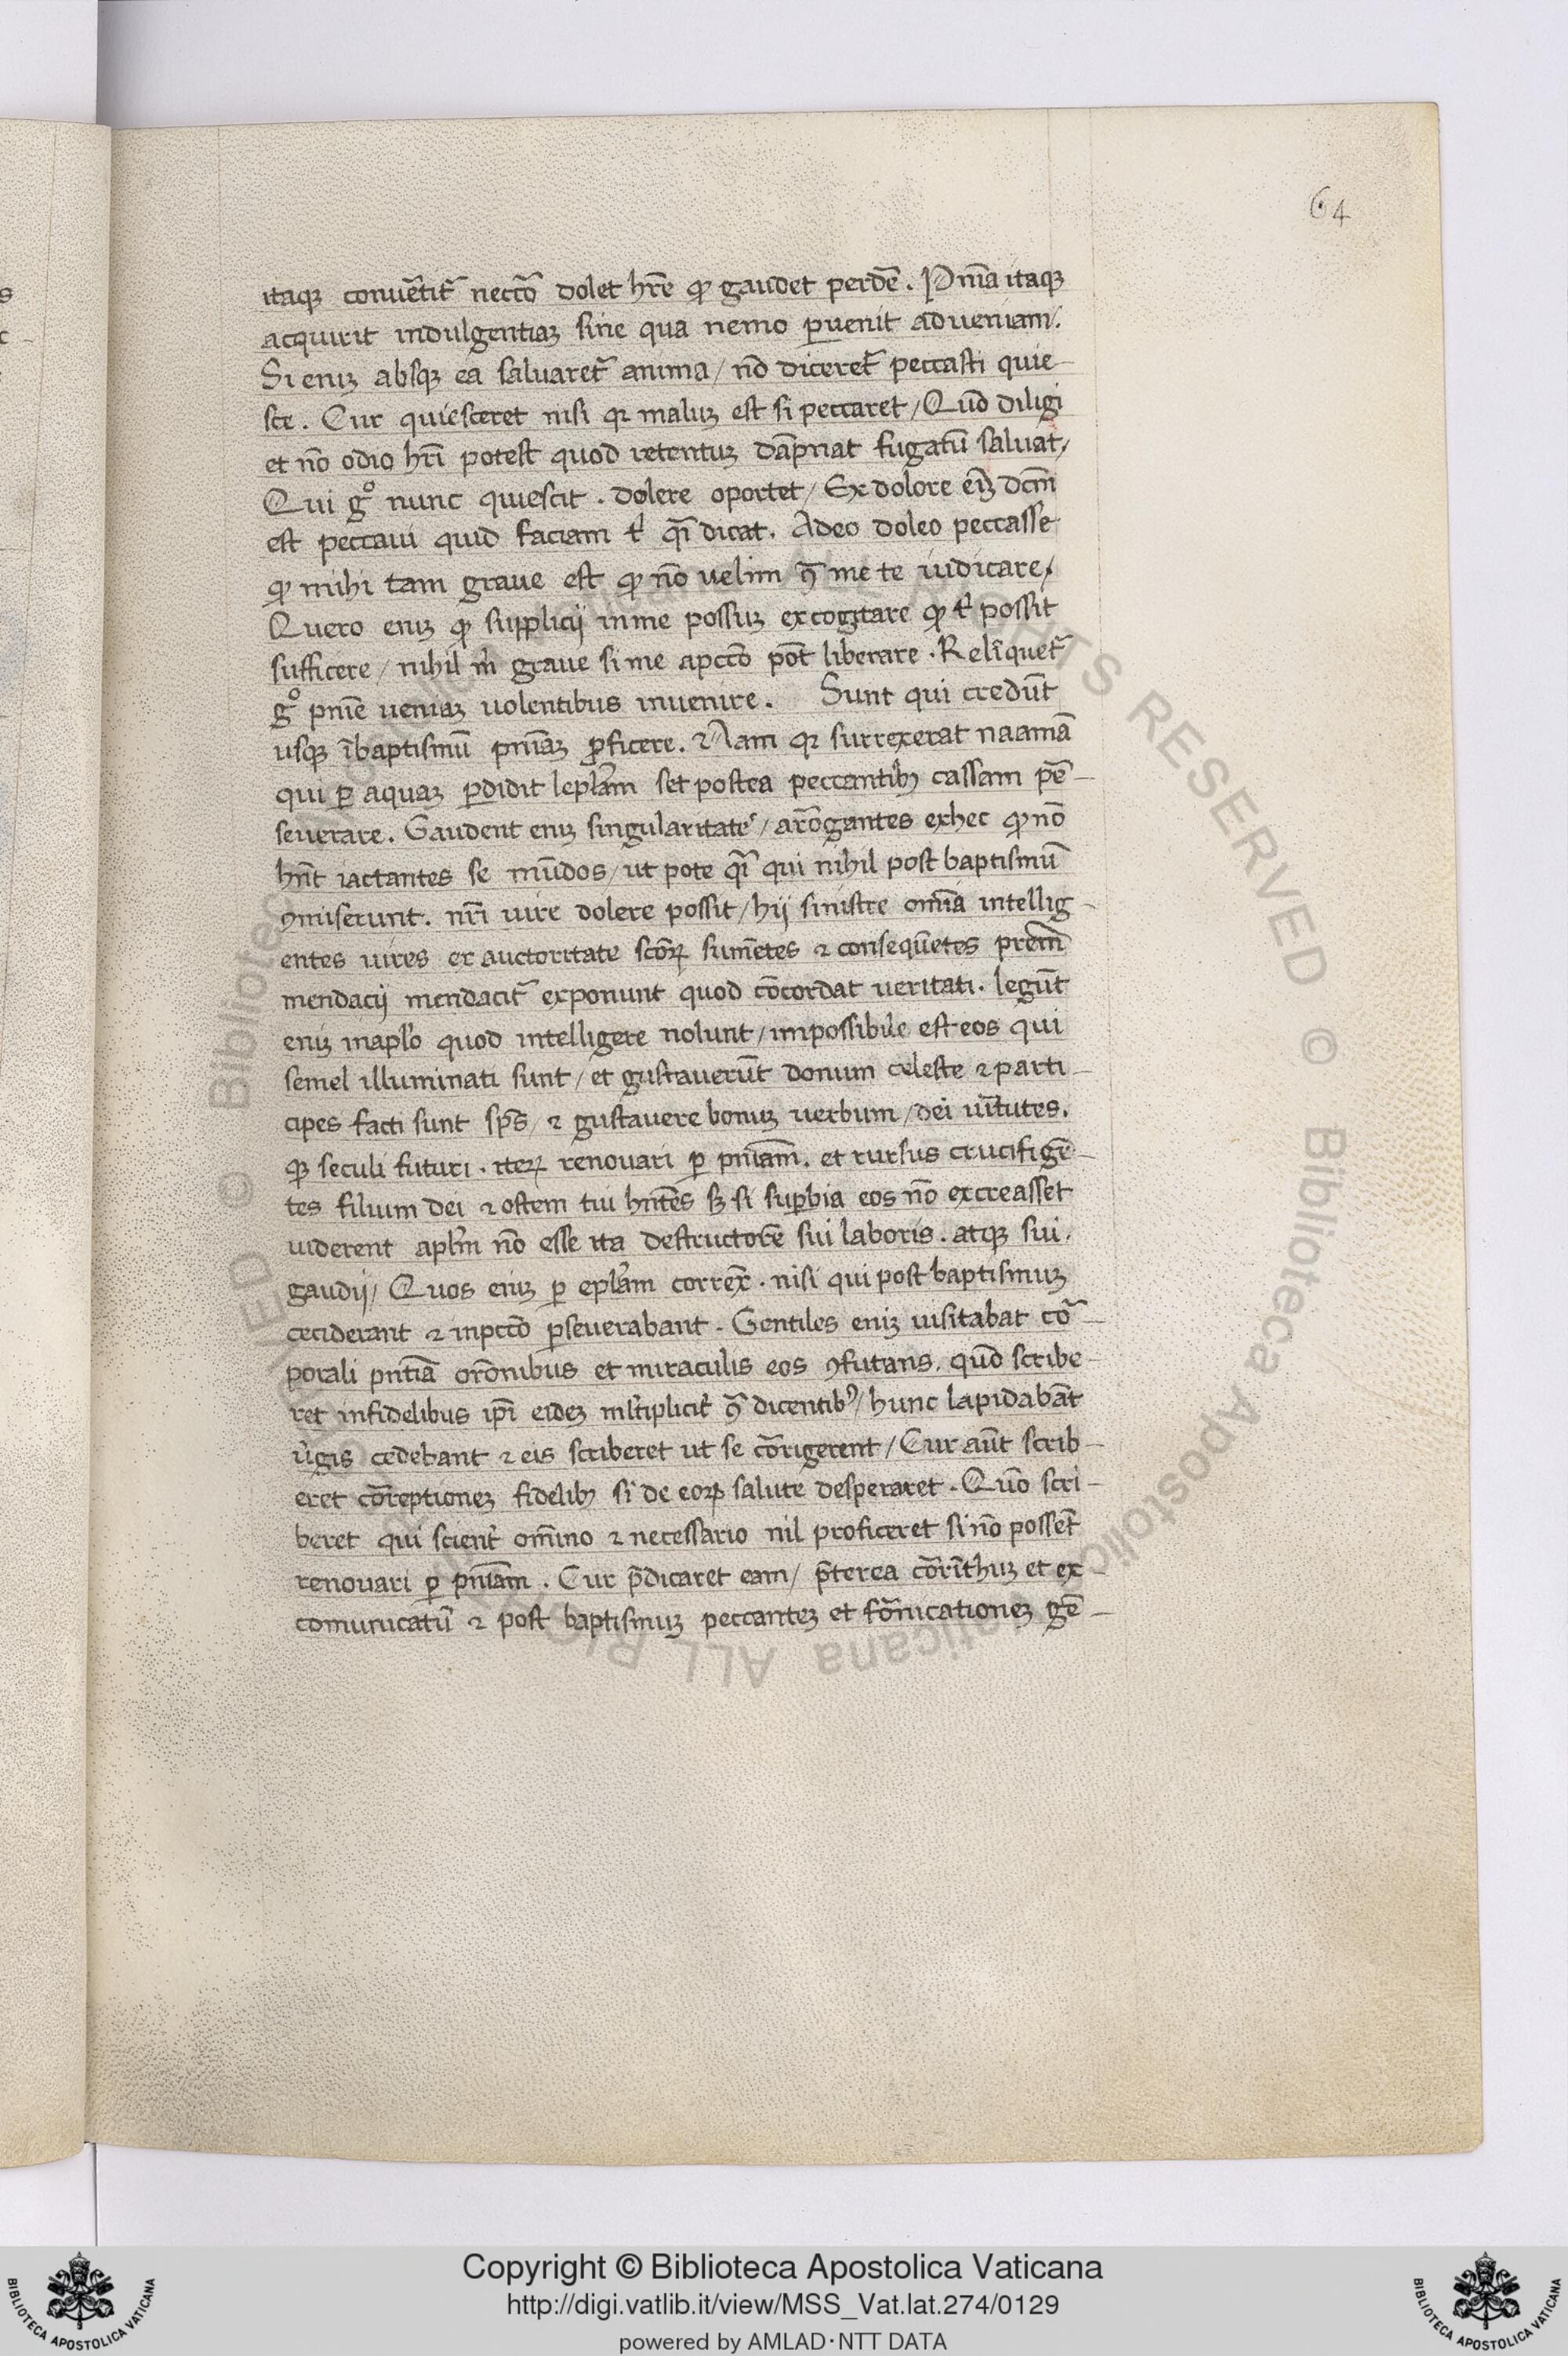 64
itaqꝫ conuēтit᷑ necc̄o dolet hr̄e ꝙ gaudet perdē. Pnīa itaqꝫ
acquirit indulgentiaꝫ sine qua nemo ꝑuenit adueniam.
Si eniꝫ absqꝫ ea saluaret᷑ anima / nō diceret᷑ peccasti quie-
sce. Cur quiesceret nisi qꝛ maluꝫ est si peccaret / Quōd diligi
et nō odio hr̄i potest quod retentuꝫ dāpnat fugatū saluat /
Qui gͦ nunc quiescit. dolere oportet / Ex dolore eī dcm̄
est peccaui quid faciam t᷑ qī dicat. Adeo doleo peccasse
ꝙ mihi tam graue est ꝙ nō uelim ꝯ me te iudicare /
Quero eniꝫ ꝙ supplicij inme possuꝫ excogitare ꝙ t᷑ possit
sufficere / nihil m̄ graue si me apccō pōt liberare. Relīquet᷑
gͦ pnīe ueniaꝫ uolentibus inuenire. Sunt qui credūt
usqꝫ ībaptismū pnīaꝫ ꝓficere. Nam qꝛ surrexerat naamā
qui ꝑ aquaꝫ ꝑdidit lepram set postea peccantibꝫ cassam pē-
seuerare. Gaudent eniꝫ singularitate / arōgantes exhec ꝙ nō
hn̄t iactantes se mūdos / ut pote qī qui nihil post baptismū
ꝯmiserunt. nr̄i uire dolere possit / hij sinistre omīa intellig-
entes uires ex auctoritate scōꝝ sumētes ⁊ consequētes prem̄
mendacij mendacit᷑ exponunt quod cōcordat ueritati. legūt
eniꝫ inapl̄o quod intelligere nolunt / impossibile est eos qui
semel illuminati sunt / et gustauerūt donum celeste ⁊ parti-
cipes facti sunt sp̄s / ⁊ gustauere bonuꝫ uerbum / dei uīrtutes.
qꝫ seculi futuri. iteꝝ renouari ꝑ pnīam. et rursus crucifigē-
tes filium dei ⁊ ostem tui hn̄tes sꝫ si suꝑbia eos nō excreasset
uiderent apl̄m nō esse ita destructorē sui laboris. atqꝫ sui.
gaudij / Quos eniꝫ ꝑ epl̄am correx̄. nisi qui post baptismuꝫ
ceciderant ⁊ inpccō ꝑseuerabant. Gentiles eniꝫ uisitabat cō-
porali pn̄tiā orōnibus et miraculis eos ꝯfutans. quōd scribe-
ret infidelibus ip̄i eideꝫ ml̄tiplicit᷑ ꝯ dicentibꝰ / hunc lapidabāt
ūgis cedebant ⁊ eis scriberet ut se cōrigerent / Cur aūt scrib-
eret cōreptioneꝫ fidelibꝫ si de eoꝝ salute desperaret. Quō scri-
beret qui scient᷑ omīno ⁊ necessario nil proficeret si nō possēt
renouari ꝑ pnīam. Cur p̄dicaret eam / p̄terea cōrīthuꝫ et ex-
comunicatū ⁊ post baptismuꝫ peccanteꝫ et fōnicationeꝫ gē-
Copyright © Biblioteca Apostolica Vaticana
http://digi.vatlib.it/view/MSS_Vat.lat.274/0129
powered by AMLAD·NTT DATA